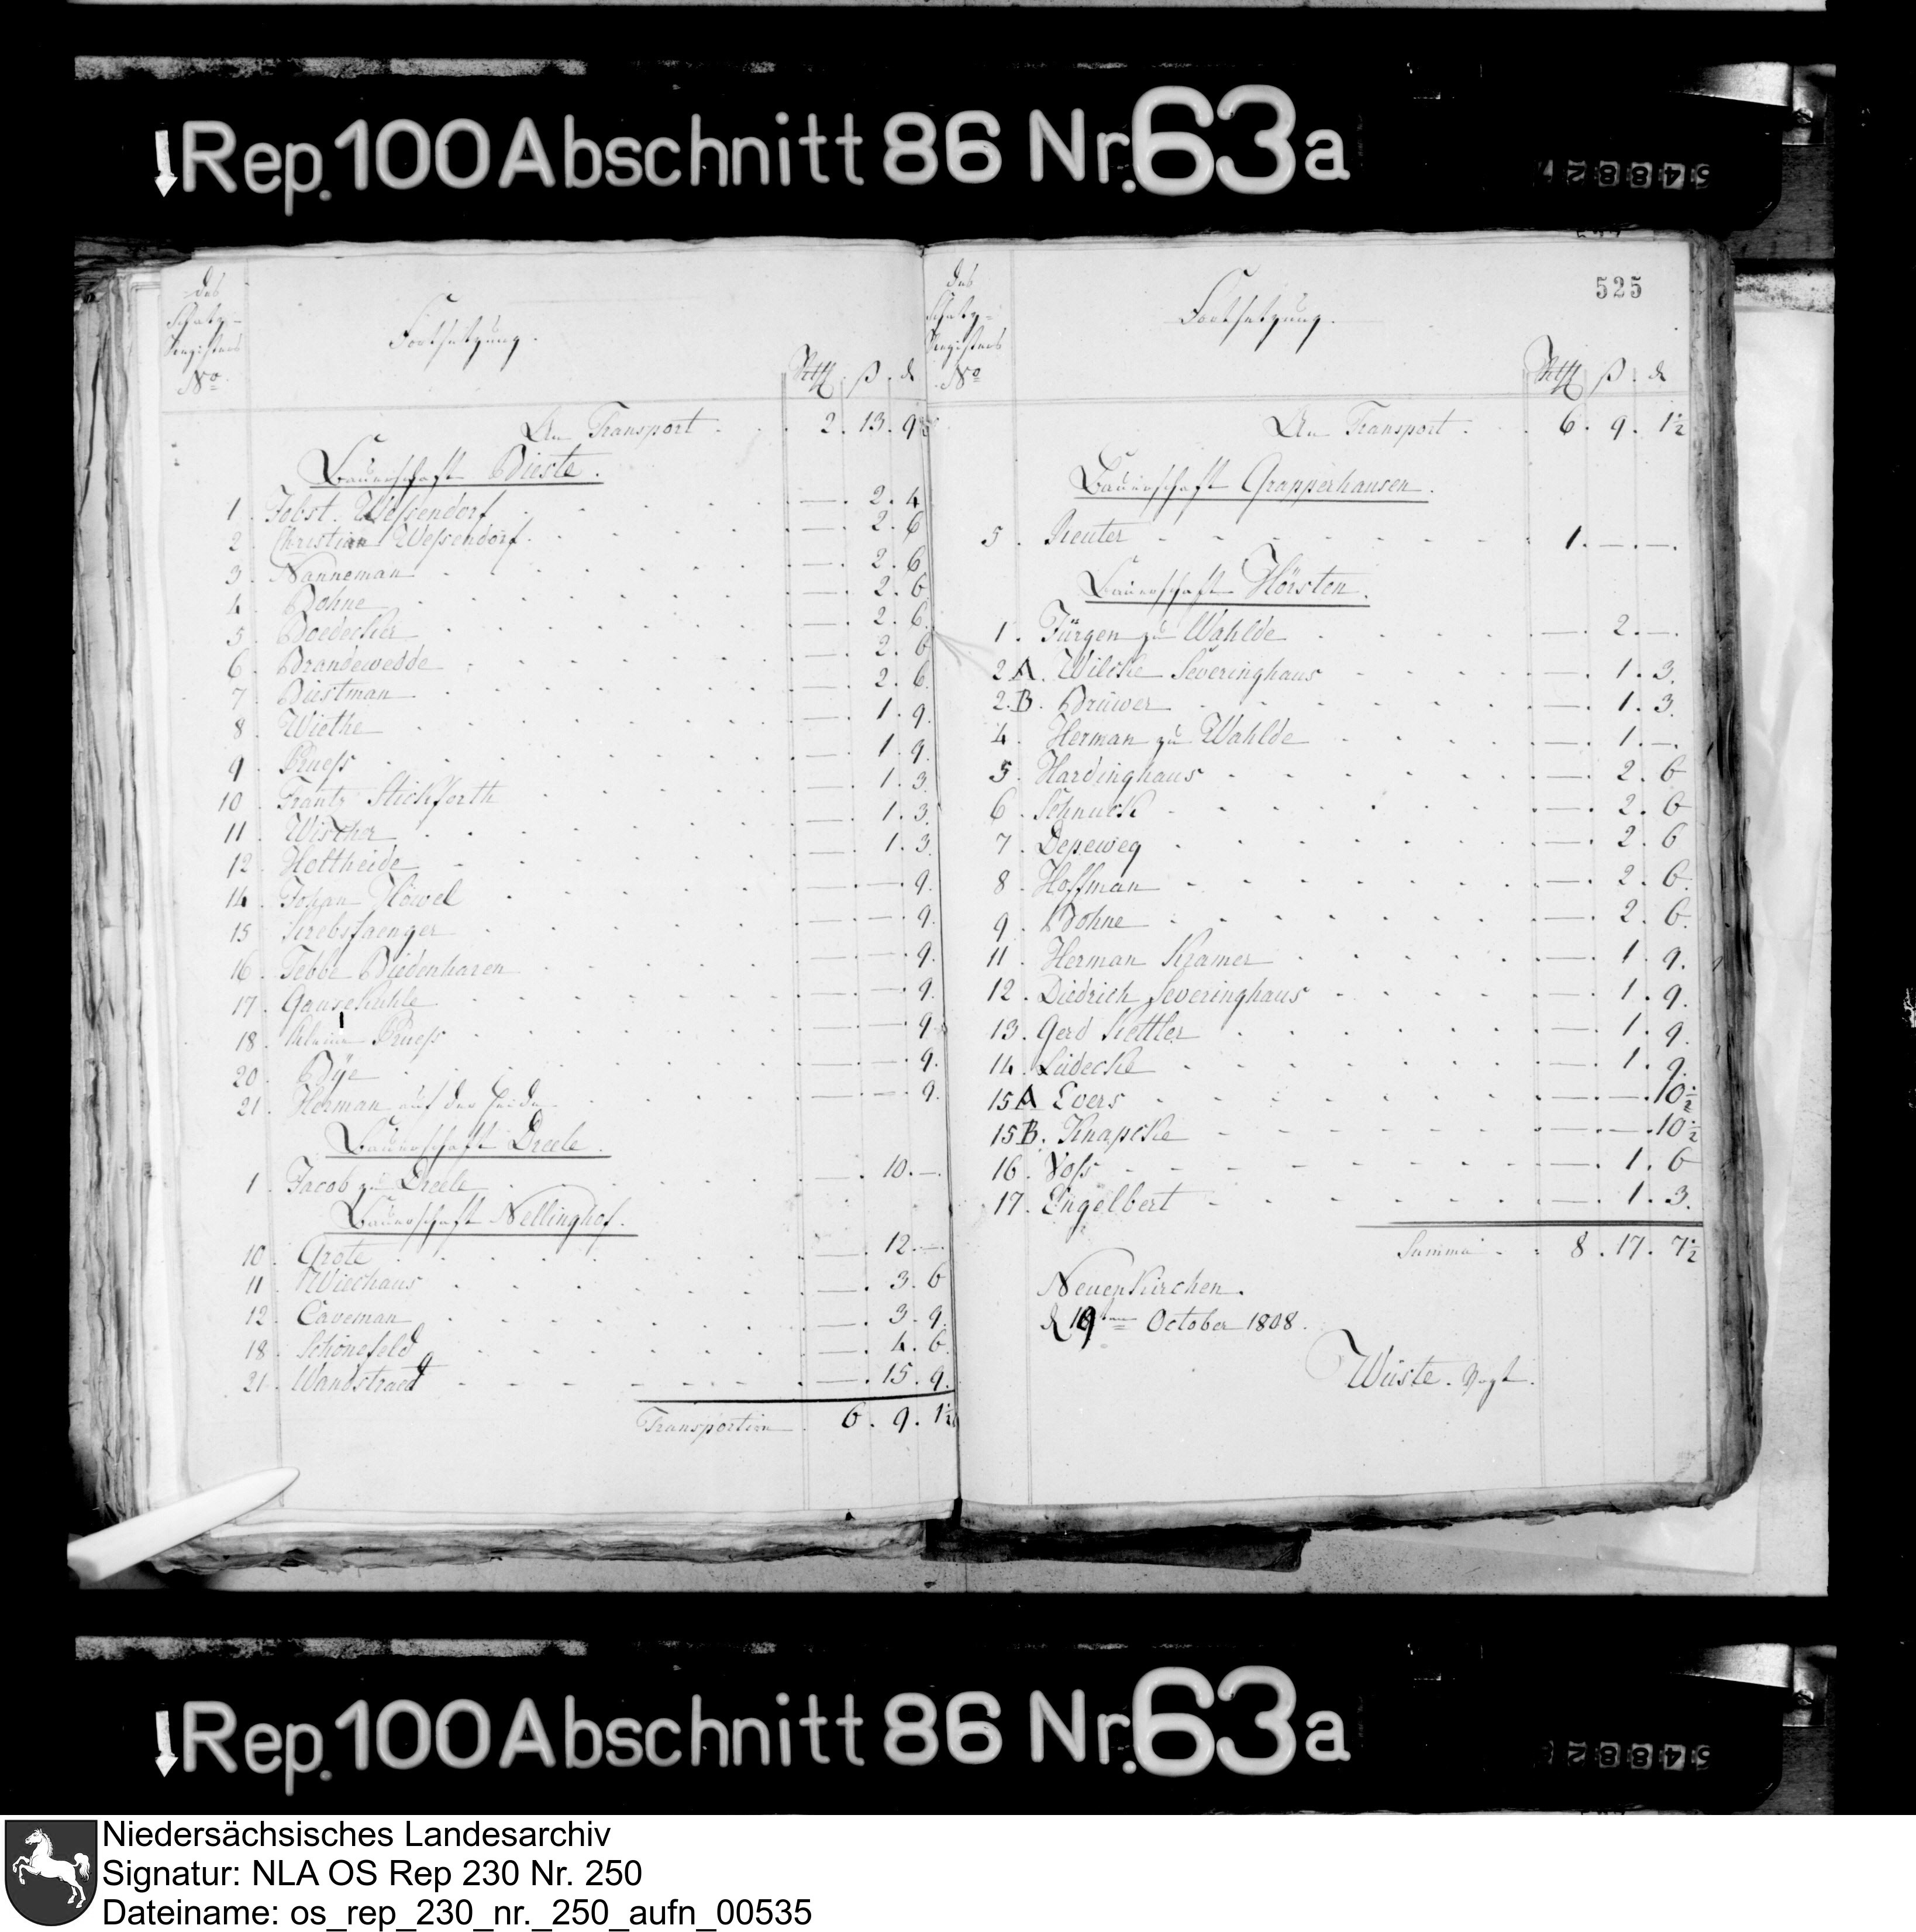 Rep. 100 Abschnitt 86 Nr. 63a
548827
des
Schatz-
Registers
No.
Fortsetzung.
Rthl. ß. d
An Transport . . 2. 13. 9½
Bauerschaft Bieste.
1. Jobst. Wessendorf . . — . 2. 4
2. Christian Wessendorf . . — . 2. 6
3. Nanneman . . — . 2. 6
4. Bohne . . — . 2. 6
5. Boedecker . . — . 2. 6
6. Brandewedde . . — . 2. 6
7. Biestman . . — . 2. 6
8. Wiethe . . — . 1. 9.
9. Pruess . . — . 1. 9
10. Frantz Stickforth . . — . 1. 3
11. Wischer . . — . 1. 3.
12. Holtheide . . — . 1. 3
14. Johan Höwel . . — . — . 9.
15. Krebsfaenger . . — . — . 9.
16. Tebbe Biedenharen . . — . — . 9.
17. Gausekuhle . . — . — . 9
18. Kleine Pruess . . — . — . 9
20. Bye . . — . — . 9.
21. Herman auf der Heide . . — . — . 9.
Bauerschaft Dreele.
1. Jacob zu Dreele . . . 10. —
Bauerschaft Nellinghof.
10. Grote . . — . 12. —
11. Wiechaus . . — . 3. 6
12. Caveman . . — . 3. 9.
18. Schönefeld . . — . 4. 6.
21. Wandstraedt . . — . 15. 9.
Transportire . 6. 9. 1½
525
des
Schatz-
Registers
No
Fortsetzung.
Rthl. ß. d
An Transport . . 6. 9. 1½
Bauerschaft Grapperhausen.
5. Reuter . . 1. —. —.
Bauerschaft Hörsten.
1. Jürgen zu Wahlde . . — . 2. —.
2 A. Wilcke Severinghaus . . — . 1. 3.
2. B. Brüwer . . — . 1. 3.
4. Herman zu Wahlde . . — . 1. —.
5. Hardinghaus . . — . 2. 6
6. Schnuck . . — . 2. 6
7. Depeweg . . — . 2. 6
8. Hoffman . . — . 2. 6.
9. Bohne . . — . 2. 6.
11. Herman Kramer . . — . 1. 9.
12. Diedrich Severinghaus . . — . 1. 9.
13. Gerd Kettler . . — . 1. 9.
14. Lüdecke . . — . 1. 9.
15 A Evers . . — . — . 10½
15 B. Knapcke . . — . — . 10½
16. Voss . . — . 1. 6
17. Engelbert . . — . 1. 3.
Summa . . 8. 17. 7½
Neuenkirchen.
d 19ten October 1808.
Wüste. Vogt.
Rep. 100 Abschnitt 86 Nr. 63a
54882
Niedersächsisches Landesarchiv
Signatur: NLA OS Rep 230 Nr. 250
Dateiname: os_rep_230_nr._250_aufn_00535